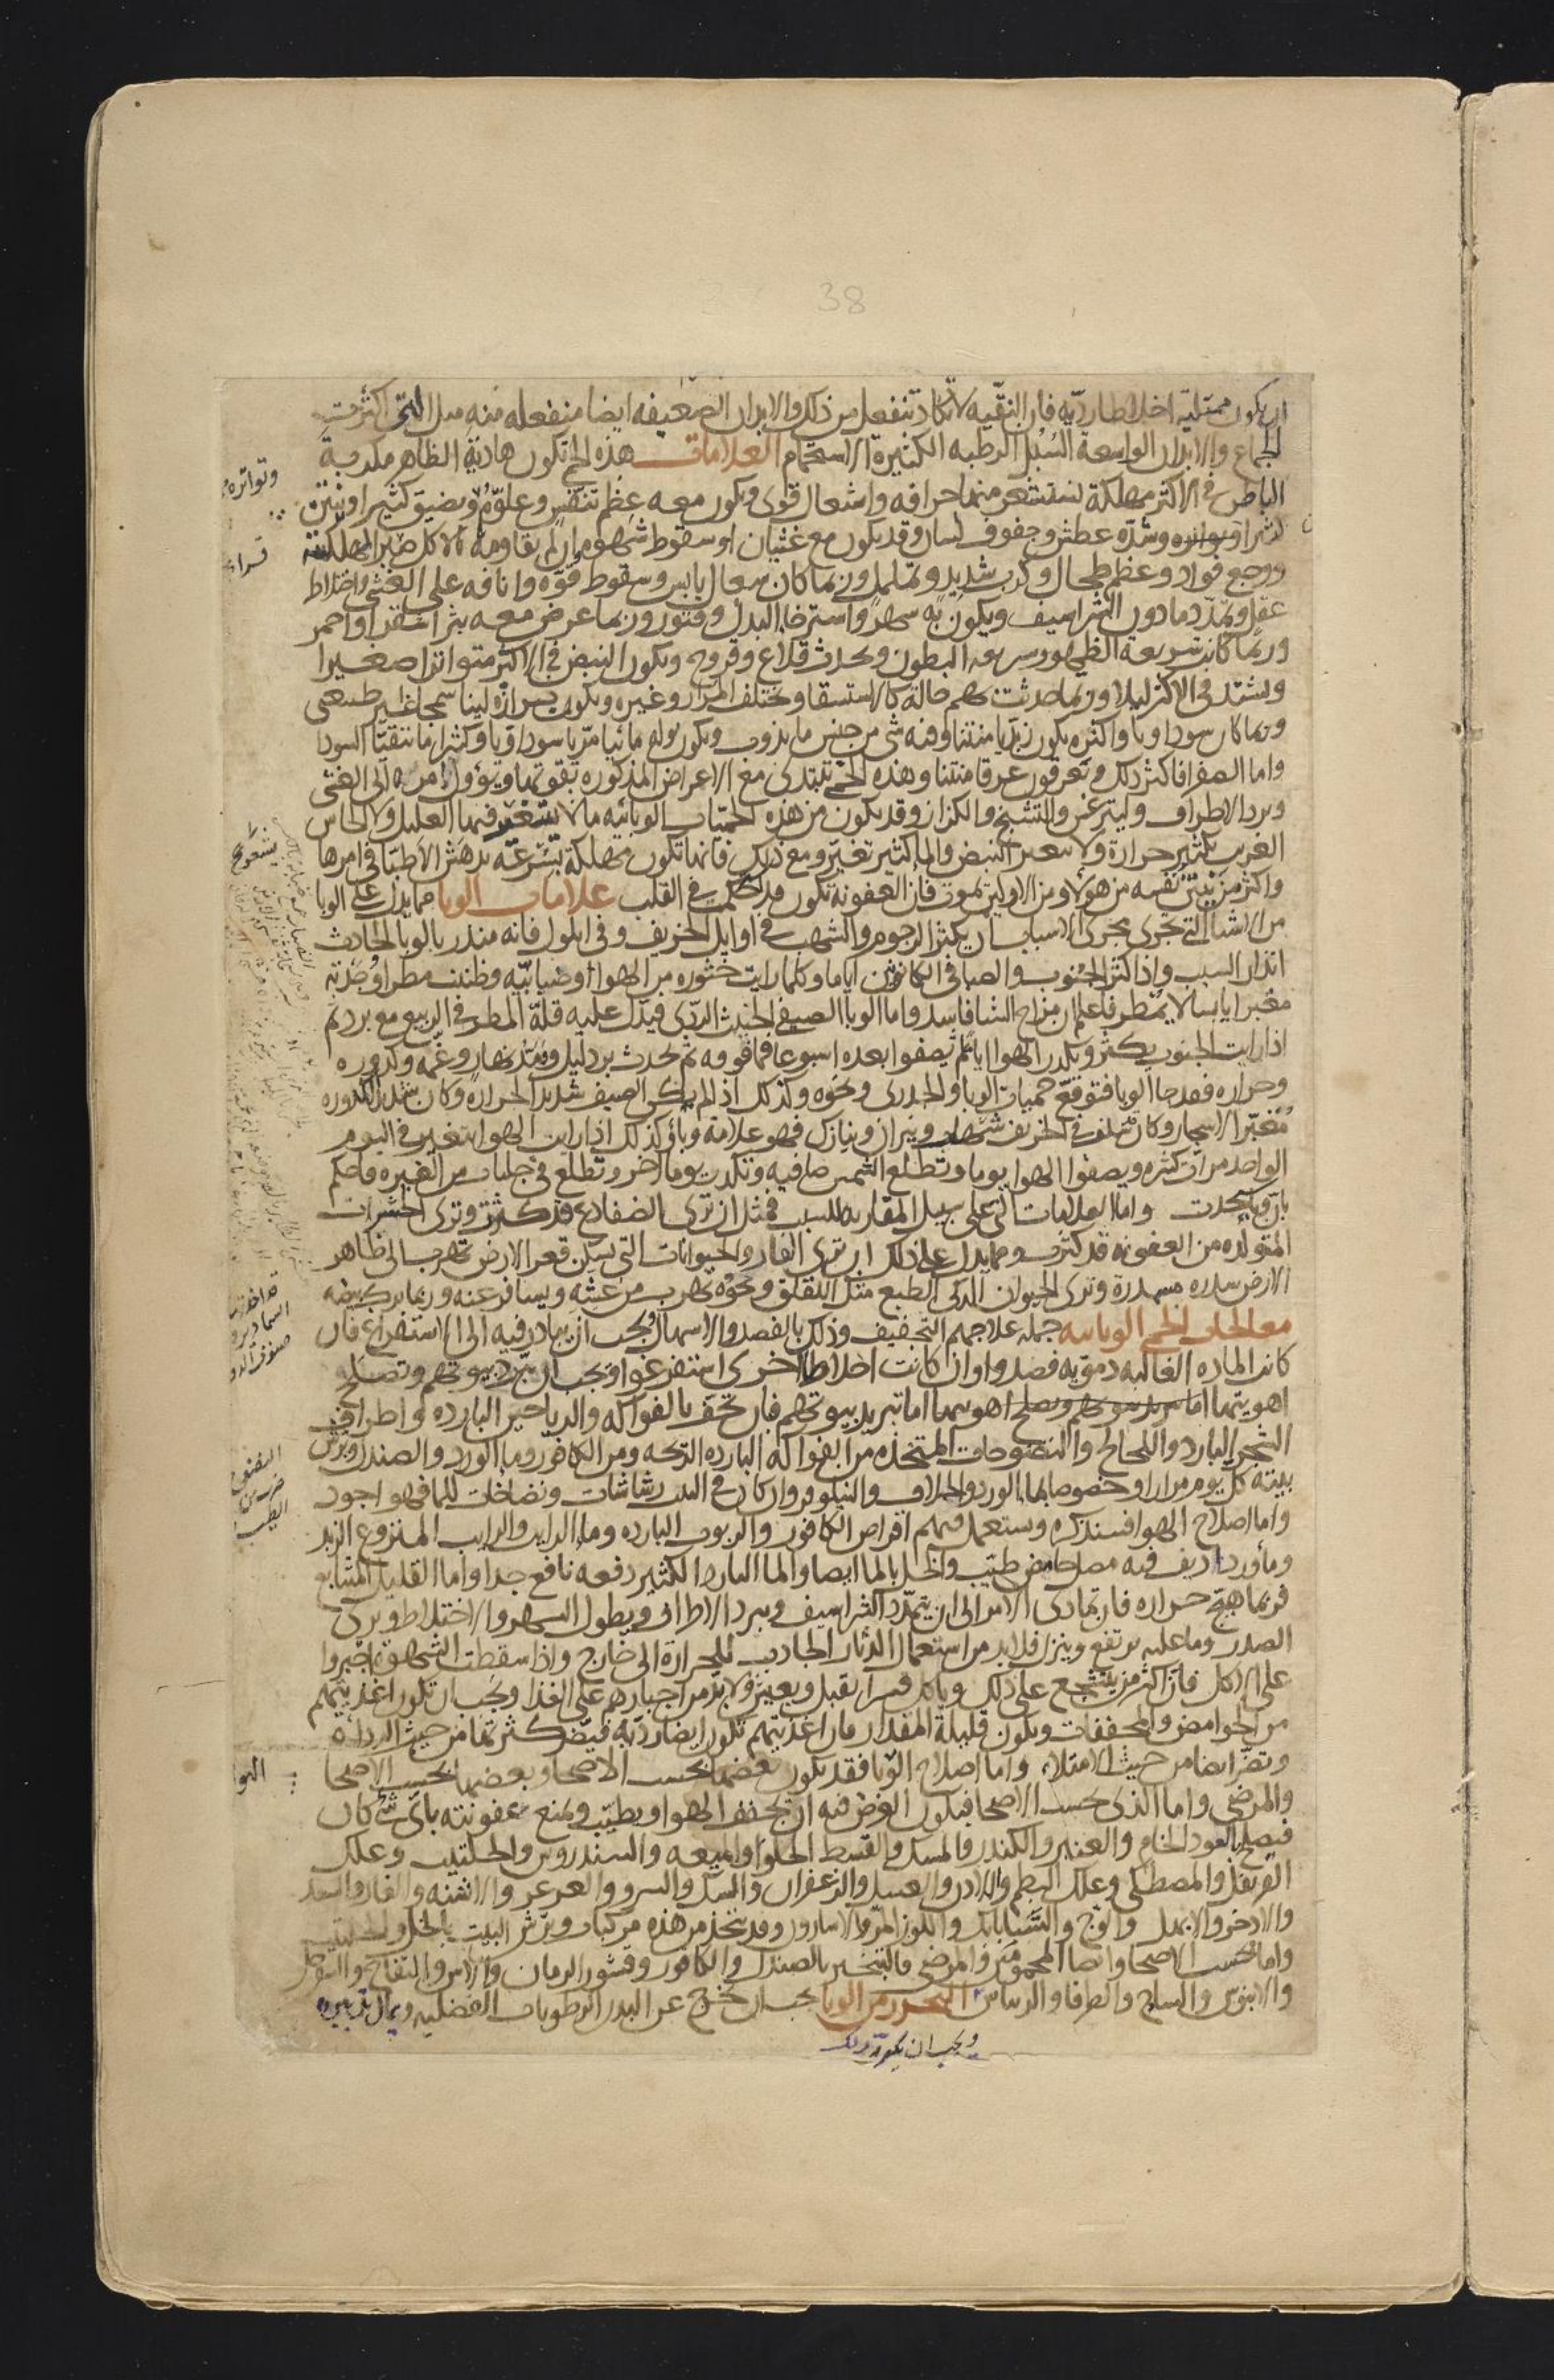 38
ان يكون ممتلئة اخلاطا رديه فان النقيه لا تكاد تنفعل من ذلك والابدان الضعيفه ايضا منفعله منه مثل التى اكثرت
الجماع والابدان الواسعة السُبُل الرطبه الكثيرة الاستحمام العلامات هذه الحمى تكون هادية الظاهر مكربة
الباطن فى الاكثر مهلكة يستشعر منها حرافه واشتعال قوى ويكون معه عظم تنفس وعلوّه ويضيق كثيرا ونتن
وتواتره وشدّه عطش وجفوف لسان وقد يكون مع غثيان او سقوط شهوه ان لم يقاومه بالاكل صبرا مهلكته
ووجع فواد وعظم طحال وكرب شديد وتململ وربما كان سعال يابس وسقوط قوّه وانافه على الغشى واختلاط
عقل وتمدّد ما دون الشراسيف ويكون به سهر واسترخا البدن وفتور وربما عرض معه بثر اشقر او احمر
وربما كانت سريعه الظهور سريعه البطون ويحدث قلاع وقروح ويكون النبض فى الاكثر متواترا صغيرا
ويشتد فى الاكثر ليلا وربما حدثت بهم حالة كالاستسقا ويختلف المرار وغيره ويكون برازه لينا سمجا غير طبيعى
وربما كان سوداويا واكثره يكون زبديا منتنا وفيه شى من جنس ما يذوب ويكون بوله مائيا مريا سوداويا وكثيرا ما يتقيا السودا
واما الصفرا فاكثر ذلك وتعرقون عرقا منتنا وهذه الحمى تبتدى مع الاعراض المذكوره بقوتها ويؤول امره الى الغشى
وبرد الاطراف وليثرغس والتشنج والكزاز وقد يكون من هذه الحميات الوبائيه ما لا يشعر فيها العليل ولا الجاس
الغريب بكثير حرارة ولا يتغير النبض والما كثير تغير ومع ذلك فانها تكون مهلكة بسرعه تدهش الاطبا فى امرها
واكثر من ينتن نفسه من هولا ومن الاولين يموت فان العفونه تكون قد استحكمت فى القلب علامات الوبا مما يدل على الوبا
من الاشيا التى تجرى مجرى الاسباب ان يكثر الرجوم والشهب فى اوايل الخريف وفى ايلول فانه منذر بالوبا الحادث
انذار السبب واذا كثر الجنوب والصبا فى الكانونين اياما وكلما رايت خثوره من الهوا وضبابيه وظننت مطرا وجدته
مغبرا يابسا لا يمطر فاعلم ان مزاج الشتا فاسد واما الوبا الصيفى الخبيث الردى فيدل عليه قلّة المطر فى الربيع مع برد ثم
اذا رايت الجنوب يكثر ويكدر الهوا اياما ثم يصفوا بعده اسبوعا فما فوقه ثم يحدث برد ليل ومد نهار وغمه وكدوره
وحراره فقد جا الوبا فتوقع حميات الوبا والجدرى ونحوه وكذلك اذا لم يكن الصيف شديد الحراره وكان شديد الكدوره
مُغبّرا الاشجار وكان سلف فى الخريف شهب ونيران ونيازك فهو علامة وبا وكذلك اذا رايت الهوا يتغير فى اليوم
الواحد مرات كثيره ويصفوا الهوا يوما وتطلع الشمس صافيه وتكدر يوما اخر وتطلع فى جلباب من الغبره فاحكم
بان وبا يحدث واما العلامات التى على سبيل المقارنه للسبب فمثل ان ترى الضفادع قد كثرت وترى الحشرات
المتولده من العفونه قد كثرت ومما يدل على ذلك ان ترى الفار والحيوانات التى تسكن قعر الارض تهرب الى ظاهر
الارض سدره مسمدرة وترى الحيوان الذكى الطبع مثل اللقلق ونحوه يهرب من عشه ويسافر عنه وربما ترك بيضه
معالجات الحمى الوبائيه جمله علاجهم التجفيف وذلك بالفصد والاسهال ويجب ان يبادر فيه الى الاستفراغ فان
كانت الماده الغالبه دمويه فصدوا وان كانت اخلاطا اخرى استفرغوا ويجب ان تبرد بيوتهم وتصلح
اهويتها اما تبريد بيوتهم وتصلح اهويتها اما تبريد بيوتهم فان تحف بالفواكه والرياحين البارده واطراف
الشجر البارد واللخالخ والنضوحات المتخذه من الفواكه البارده الريحه ومن الكافور وما الورد والصندل ويرش
بيته كل يوم مرارا وخصوصا بما الورد والخلاف والنيلوفر وان كان فى البيت رشاشات ونضاخات للما فهو اجود
واما اصلاح الهوا فسنذكره وستعمل فيهم اقراص الكافور والربوب البارده وما الرايب والرايب المنزوع الزبد
وما ورد اديف فيه مصل حامض طيب والخل بالما ايضا والما البارد الكثير دفعه نافع جدا واما القليل المتتابع
فربما هيج حراره فان تمادى الامر الى ان يتمدّد الشراسيف ويبرد الاطراف ويطول السهر والاختلاط وترى
الصدر وما عليه يرتفع وينزل فلا بد من استعمال الدثار الجاذب للحرارة الى خارج واذا سقطت الشهوة اجبروا
على الاكل فان اكثر من يتشجع على ذلك وياكل قسرا تقبل ويعيش ولا بد من اجبارهم على الغذا ويجب ان تكون اغذيتهم
من الحوامض والمجففات ويكون قليلة المقدار فان اغذيتهم تكون ايضا رديه فيضر كثرتها من حيث الرداه
وتضر ايضا من حيث الامتلاء واما اصلاح الوبا فقد يكون بعضها بحسب الاصحا وبعضها بحسب الاصحا
والمرضى واما الذى بحسب الاصحا فيكون الغرض فيه ان يجفف الهوا ويطيب ويمنع عفونته باى شى كان
فيصلح بالعود الخام والعنبر والكندر والمسك والقسط الحلو والميعه والسندروس والحلتيت وعلك
القرنفل والمصطكى وعلك البطم واللادن والعسل والزعفران والسك والسرو والعرعر والاشنه والغار والسعد
والاذخر والابهل والوج والشاباباك واللوز المرّ والاسارون وقد يتخذ من هذه مركبات ويرش البيت بالخل والحلتيت
واما بحسب الاصحا وايضا المحمومين والمرضى فالتبخير بالصندل والكافور وقشور الرمان والآس والتفاح والسفرجل
والابنوس والساج والطرفا والريباس التحرز من الوبا يجب ان يخرج عن البدن الرطوبات الفضليه ويمال تدبيره
ويجب ان يكون ذلك
وتواتره
بشعر صح
الهوا